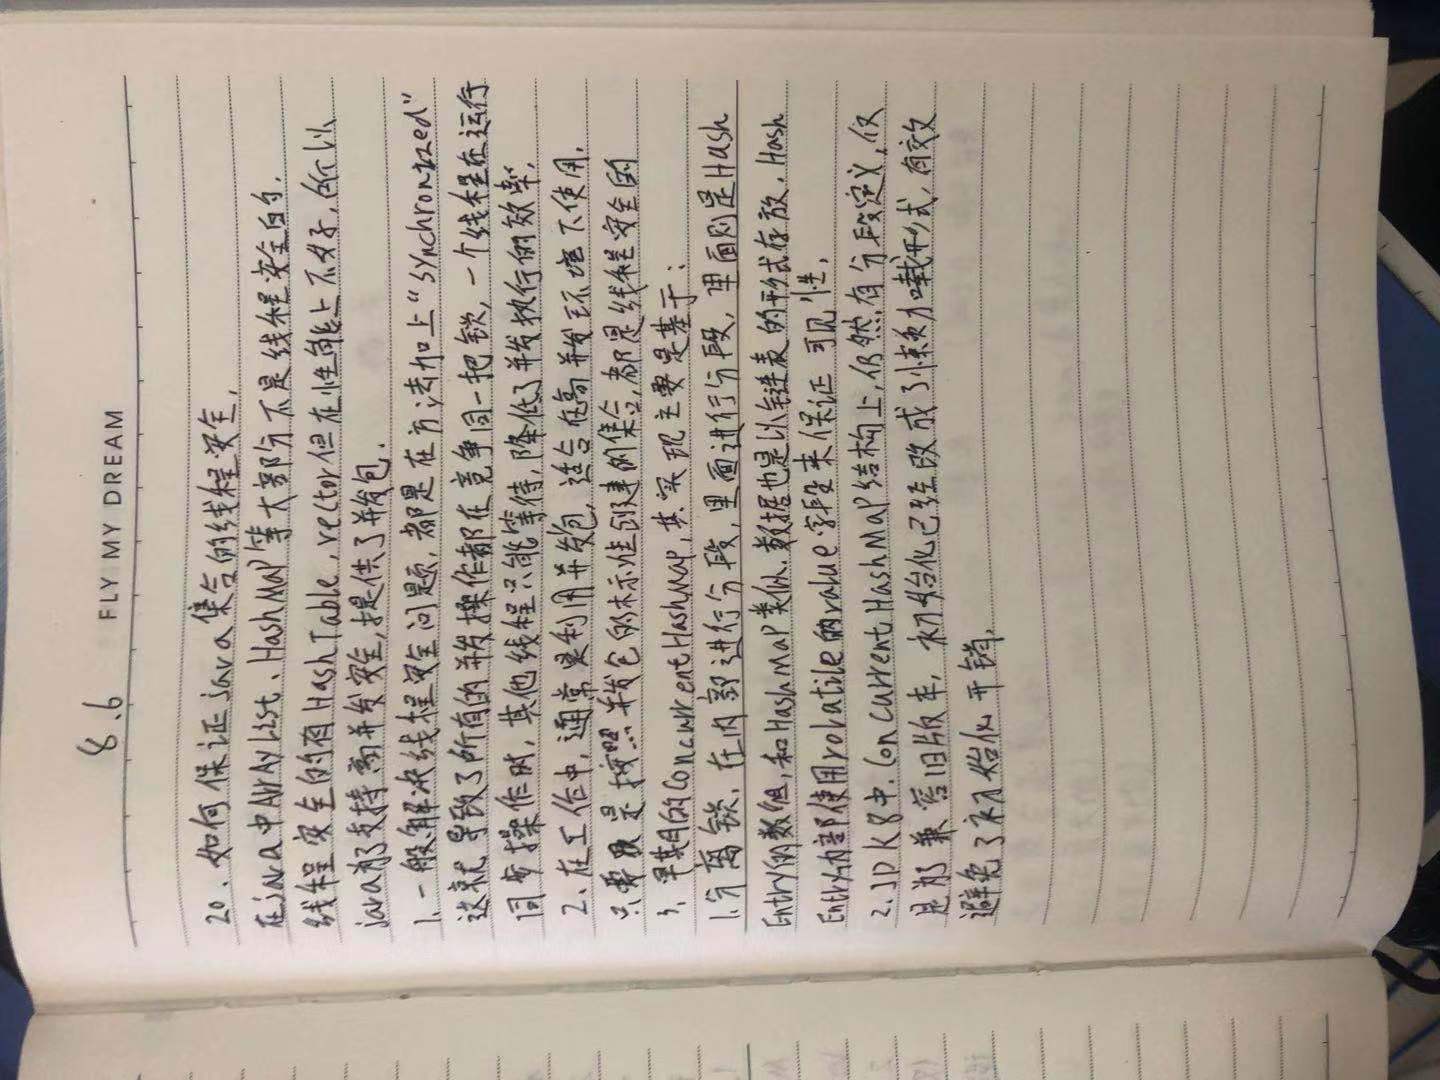 8.6
FLY MY DREAM
20、如何保证java集合的线程安全.
在java中ArrayList、HashMap等大部分不是线程安全的.
线程安全的有HashTable、vector但在性能上不好,所以
java为了支持高并发安全,提供了并发包.
1、一般解决线程安全问题,都是在方法加上"synchronized"
这就导致了所有的并发操作都在竞争同一把锁,一个线程在运行
同步操作时,其他线程只能等待,降低了并发执行的效率.
2、在工作中,通常是利用并发包,适合在高并发环境下使用.
只要是按照并发包的标准创建的集合,都是线程安全的
3、早期的ConcurrentHashMap,其实现主要是基于:
1.分离锁,在内部进行分段,里面进行分段,里面则是Hash
Entry的数组,和HashMap类似.数据也是以链表的形式存放,Hash
Entry内部使用volatile的value字段来保证可见性.
2、JDK8中.ConcurrentHashMap结构上,仍然有分段定义,仅
是为兼容旧版本,初始化已经改成了懒加载形式,有效
避免了初始化开销.